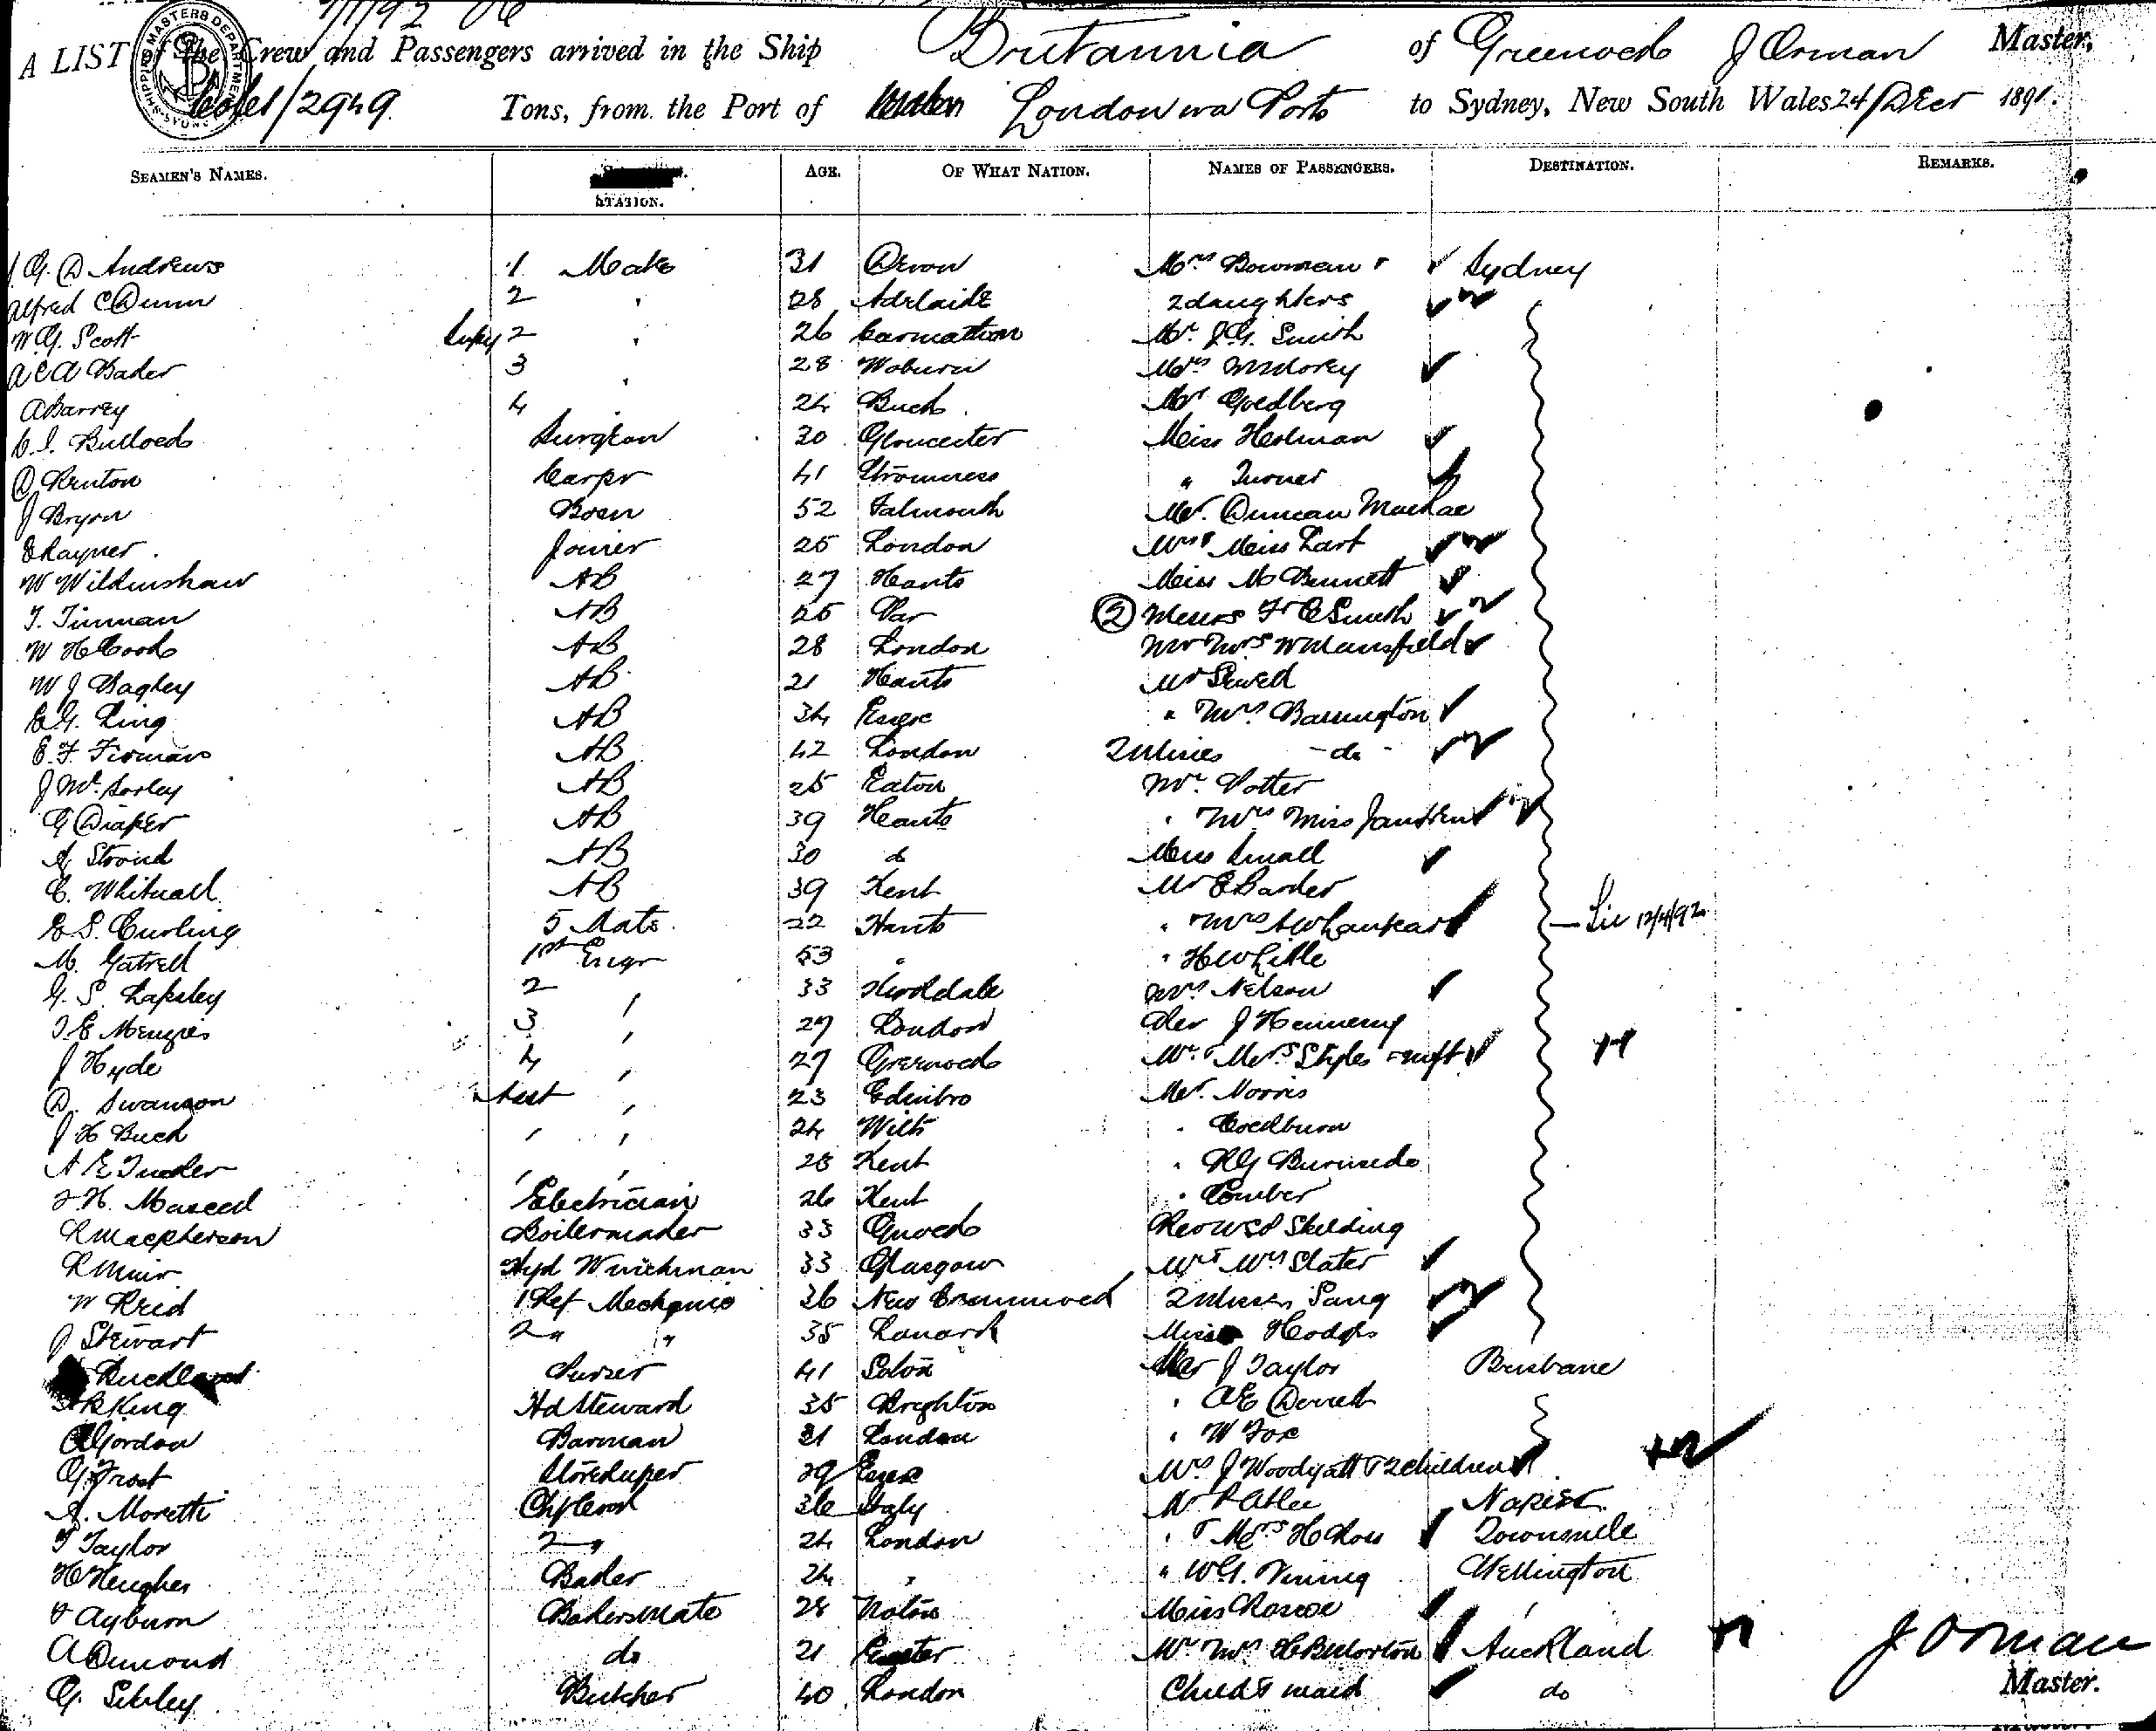 7/1/92
A LIST of the Crew and Passengers arrived in the Ship Britannia of Greenock J Orman Master,
2949 Tons, from the Port of London via Ports to Sydney, New South Wales 24/Decr 1891.
SHIPPING MASTERS DEPARTMENT SYDNEY
SEAMEN'S NAMES. STATION. AGE. OF WHAT NATION. NAMES OF PASSENGERS. DESTINATION. REMARKS.
G. D Andrews 1 Mate 31 Devon Mrs Bowman + Sydney
Alfred C Dunn 2 " 28 Adelaide 2 daughters
W G. Scott Supy 2 " 26 Mr. J G. Smith
A C A Baker 3 " 28 Woburn Mrs
A Barrey 4 24 Bucks Mr Goldberg
Surgeon 30 Gloucester Miss Holman
D Renton Carpr 41 Stromness " Turner
J Bryon Bosn 52 Falmouth Mr. Duncan MacRae
E Rayner Joiner 25 London Mrs + Miss Lart
W Wilkinshaw AB 27 Hants Miss M Bennett
T. Tinman AB 25 Par (2) Messrs F + C Smith
W H Cook AB 28 London Mr Mrs W Mansfield
W J Bagley AB 21 Hants Mr Sewell
E G. Ling AB 34 Essex " Mrs Barrington
E. F. Firman AB 42 London 2 Misses - do -
J Mc Sorley AB 25 Eaton Mr. Potter
G Diaper AB 39 Hants " Mrs Miss
A Stroud AB 30 do Miss Small
C. Whitnall AB 39 Kent Mr E Barker
E S. Curling 5 Mate 22 Hants " Mrs A W Lie 12/4/92
M. Gatrell 1st Engr 53 " " H W Little
G. S. Lapsley 2 " 33 Mrs Nelson
J. E Menzies 3 " 27 London Rev J
J Hyde 4 " 27 Greenock Mr. + Mrs Styles + inft
D. Swanson Asst " 23 Edinbro Mr. Norris
J H Buck " " 24 Wilts " Cockburn
A E Tucker " " 28 Kent " R G Burnside
Electrician 26 Kent " Comber
R Macpherson Boilermaker 33 Gnock Rev W S P Skelding
R Muir Hyd Winchman 33 Glasgow Mr + Mrs Slater
W Reid 1 Ref Mechanic 36 New 2 Misses Sang
J Stewart 2 " " 35 Lanark Miss Hodges
Purser 41 Mr J Taylor Brisbane
King Hd Steward 35 Brighton " A E Derrett
Gordon Barman 31 London " W Fox
G Frost Storekeeper 29 Essex Mrs J Woodyatt + 2 children
A. Moretti Chf Cook 36 Italy Mr Napier
T Taylor 2 " 24 London " + Mrs H Ross Townsville
H Hughes Baker 24 " " W G. Vining Wellington
Ayburn Bakers Mate 28 Miss Roscoe "
A Dimond do 21 Exeter Mr Mrs Auckland
G. Sibley Butcher 40 London Child + maid do
J Orman
Master.